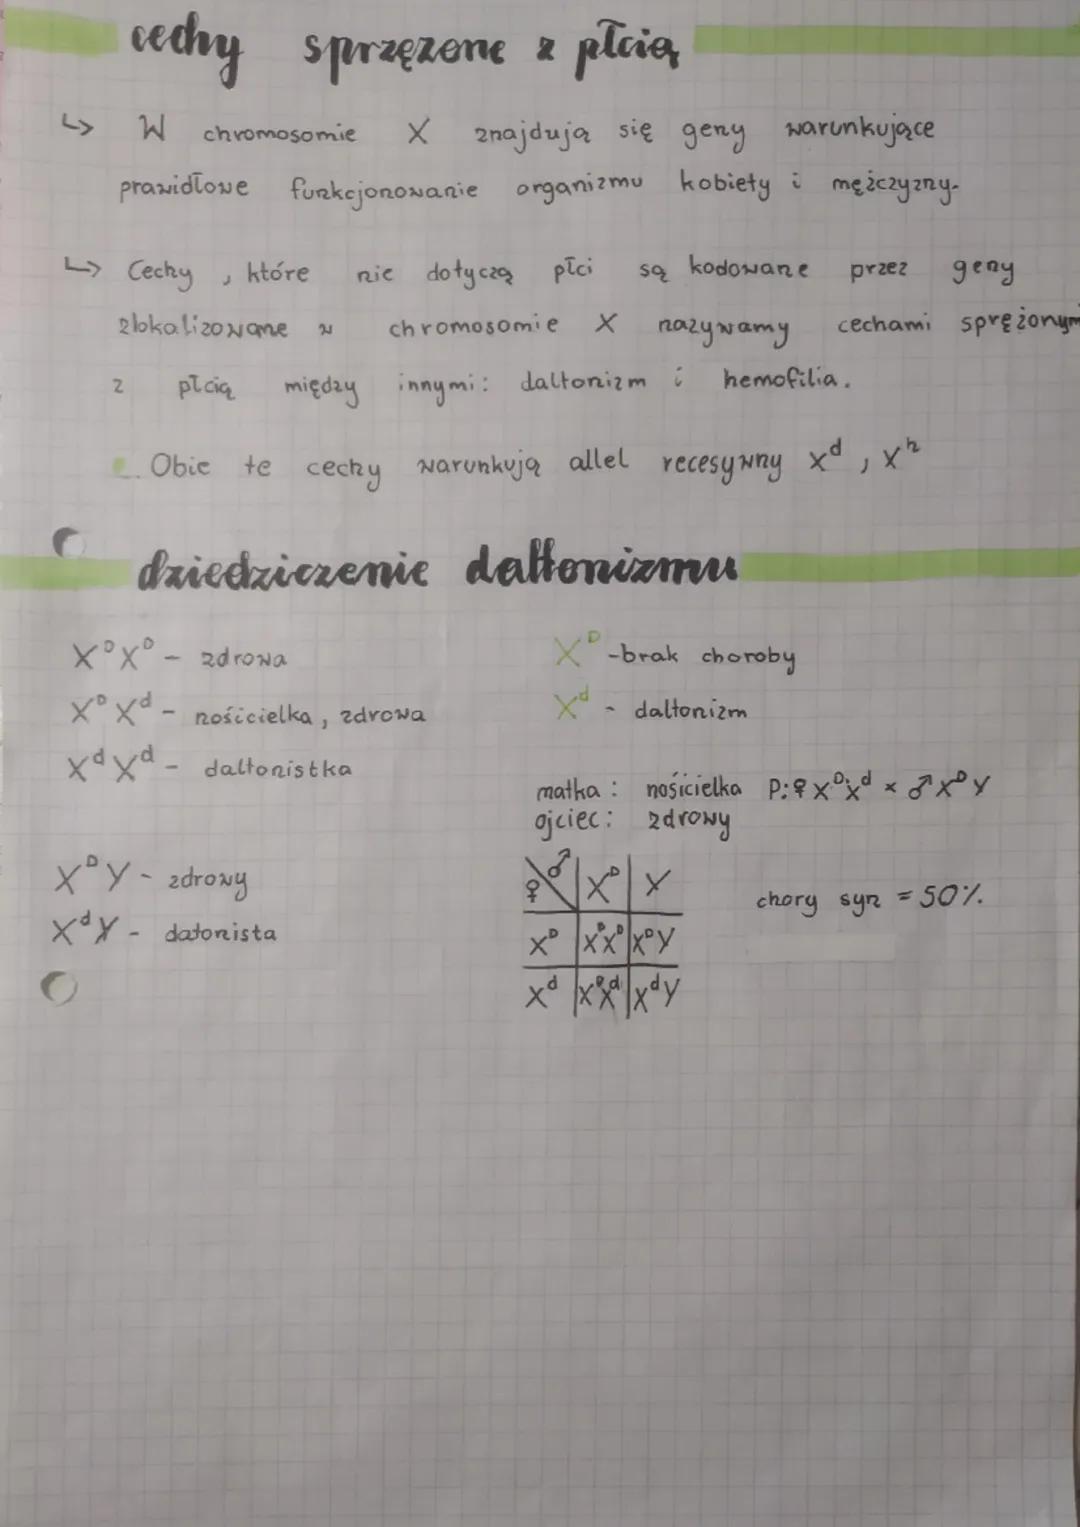 cechy sprzężone z płcią
↳ W chromosomie X znajdują się geny warunkujące
prawidłowe funkcjonowanie organizmu kobiety i mężczyzny.
↳ Cechy, które nie dotyczą płci są kodowane przez geny
zlokalizowane w chromosomie X nazywamy cechami sprężonym
z płcią między innymi: daltonizm i hemofilia.
Obie te cechy warunkują allel recesywny Xᵈ, Xʰ
dziedziczenie daltonizmu
XᴰXᴰ - zdrowa
XᴰXᵈ - nosicielka, zdrowa
XᵈXᵈ - daltonistka
XᴰY - zdrowy
XᵈY - datonista
Xᴰ - brak choroby
Xᵈ - daltonizm
matka: nosicielka P: ♀ XᴰXᵈ × ♂ XᴰY
ojciec: zdrowy
♀ ♂ Xᴰ Y
Xᴰ XᴰXᴰ XᴰY
Xᵈ XᴰXᵈ XᵈY
chory syn = 50%